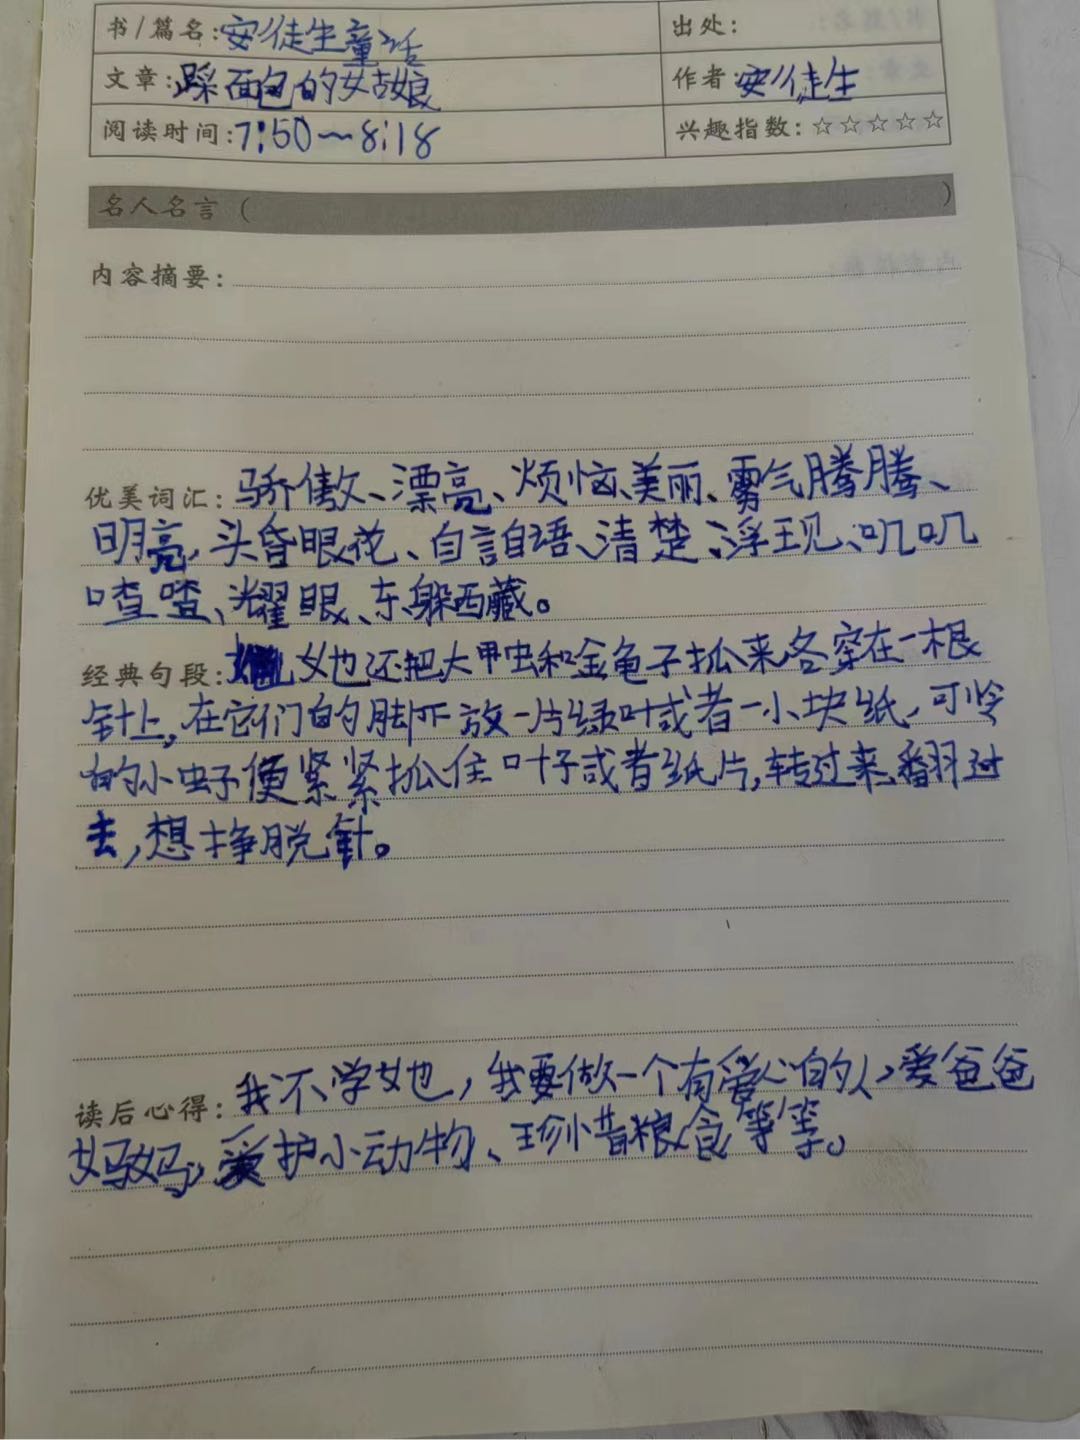 书/篇名:安徒生童话 出处:
文章:踩面包的女姑娘 作者:安徒生
阅读时间:7:50~8:18 兴趣指数:☆☆☆☆☆
名人名言( )
内容摘要:
优美词汇:骄傲、漂亮、烦恼、美丽、雾气腾腾、
明亮、头昏眼花、自言自语、清楚、浮现、叽叽
喳喳、耀眼、东躲西藏。
经典句段:她还把大甲虫和金龟子抓来各穿在一根
针上,在它们的脚下放一片绿叶或者一小块纸,可怜
的小虫子便紧紧抓住叶子或者纸片,转过来,翻过
去,想挣脱针。
读后心得:我不学她,我要做一个有爱心的人,爱爸爸
妈妈,爱护小动物、珍惜粮食等等。